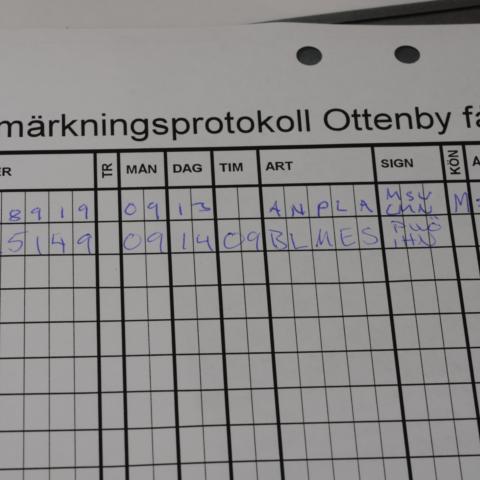 märkningsprotokoll Ottenby få
R TR MÅN DAG TIM ART SIGN KÖN A
8919 09 13 ANPLA MSV CMN M
5149 09 14 09 BLMES PWÖ IHN